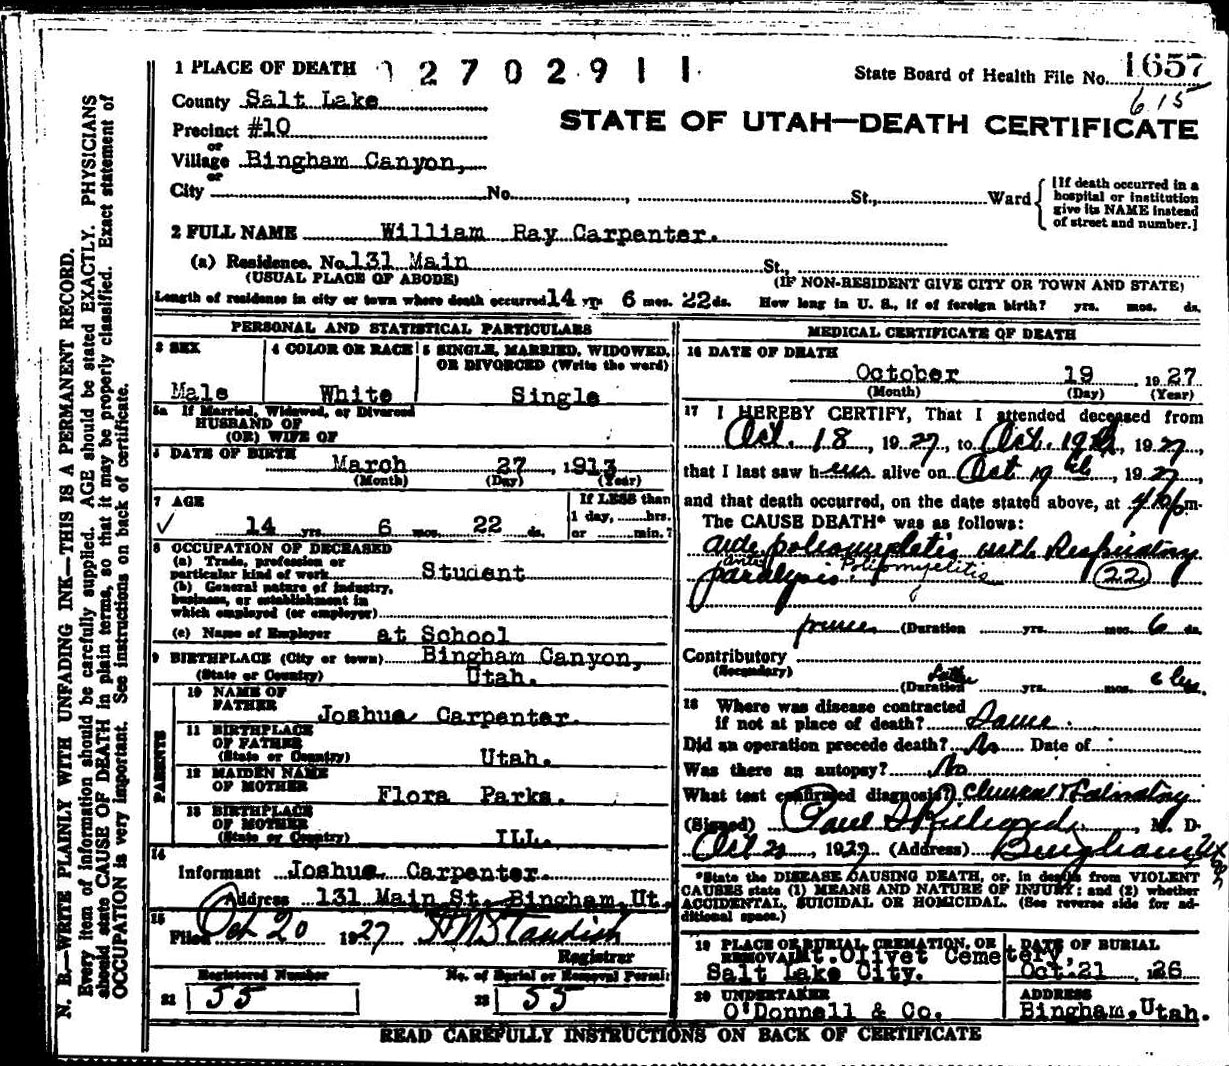 1 PLACE OF DEATH 2702911 State Board of Health File No. 1657
615
County Salt Lake
STATE OF UTAH—DEATH CERTIFICATE
Precinct #10
or
Village Bingham Canyon,
or
City No. , St., Ward
[If death occurred in a
hospital or institution
give its NAME instead
of street and number.]
2 FULL NAME William Ray Carpenter.
(a) Residence. No. 131 Main St.,
(USUAL PLACE OF ABODE) (IF NON-RESIDENT GIVE CITY OR TOWN AND STATE)
Length of residence in city or town where death occurred 14 yrs 6 mos. 22 ds. How long in U. S., if of foreign birth? yrs. mos. ds.
PERSONAL AND STATISTICAL PARTICULARS
3 SEX
Male
4 COLOR OR RACE
White
5 SINGLE, MARRIED, WIDOWED,
OR DIVORCED (Write the word)
Single
5a If Married, Widowed, or Divorced
HUSBAND OF
(OR) WIFE OF
6 DATE OF BIRTH March 27, 1913
(Month) (Day) (Year)
7 AGE
14 yrs. 6 mos. 22 ds.
If LESS than
1 day, hrs.
or min.?
8 OCCUPATION OF DECEASED
(a) Trade, profession or
particular kind of work Student
(b) General nature of industry,
business, or establishment in
which employed (or employer)
(c) Name of Employer at School
9 BIRTHPLACE (City or town) Bingham Canyon,
(State or Country) Utah.
PARENTS
10 NAME OF
FATHER Joshua Carpenter.
11 BIRTHPLACE
OF FATHER
(State or Country) Utah.
12 MAIDEN NAME
OF MOTHER Flora Parks.
13 BIRTHPLACE
OF MOTHER
(State or Country) ILL.
14
Informant Joshua Carpenter.
Address 131 Main St. Bingham, Ut.
15
Filed Oct 20 1927 Standish
Registrar
Registered Number No. of Burial or Removal Permit
21 55 22 55
MEDICAL CERTIFICATE OF DEATH
16 DATE OF DEATH
October 19, 1927
(Month) (Day) (Year)
17 I HEREBY CERTIFY, That I attended deceased from
Oct. 18, 1927, to Oct. 19th, 1927
that I last saw him alive on Oct 19th, 1927,
and that death occurred, on the date stated above, at m.
The CAUSE DEATH* was as follows:
poliomyelitis with Respiratory
paralysis. Poliomyelitis 22
(Duration yrs. mos. 6 ds.
Contributory
(Secondary)
(Duration yrs. mos. 6 hrs.
18 Where was disease contracted
if not at place of death? Same.
Did an operation precede death? No Date of
Was there an autopsy? No
What test confirmed diagnosis? Clinical & Laboratory
(Signed) Paul S Richards, M. D.
Oct 20, 1927 (Address) Bingham Utah
*State the DISEASE CAUSING DEATH, or, in deaths from VIOLENT
CAUSES state (1) MEANS AND NATURE OF INJURY; and (2) whether
ACCIDENTAL, SUICIDAL OR HOMICIDAL. (See reverse side for ad-
ditional space.)
19 PLACE OF BURIAL, CREMATION, OR
REMOVAL Mt. Olivet Cemetery,
Salt Lake City.
DATE OF BURIAL
Oct. 21, 1926
20 UNDERTAKER
O'Donnell & Co.
ADDRESS
Bingham, Utah.
READ CAREFULLY INSTRUCTIONS ON BACK OF CERTIFICATE
N. B.—WRITE PLAINLY WITH UNFADING INK—THIS IS A PERMANENT RECORD.
Every item of information should be carefully supplied. AGE should be stated EXACTLY. PHYSICIANS
should state CAUSE OF DEATH in plain terms, so that it may be properly classified. Exact statement of
OCCUPATION is very important. See instructions on back of certificate.